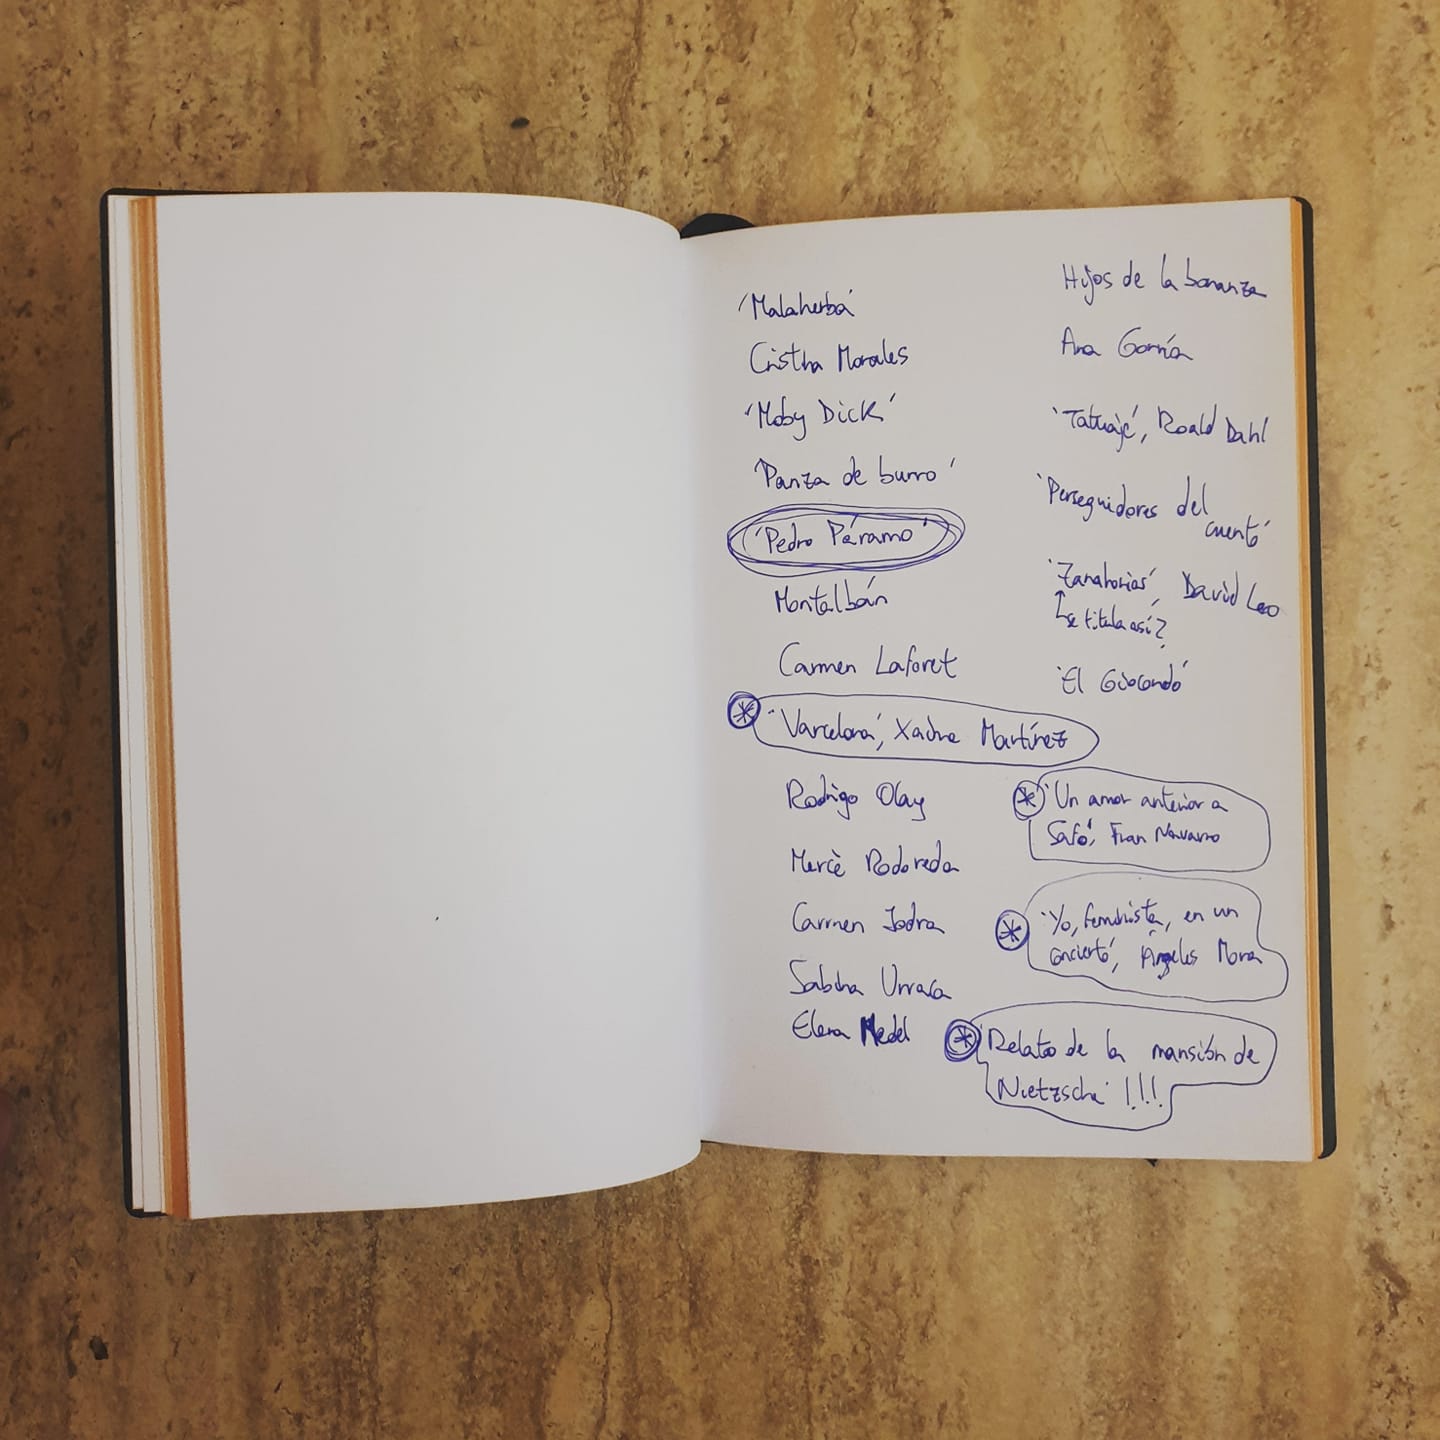 'Malaherba'
Cristina Morales
'Moby Dick'
'Panza de burro'
'Pedro Páramo'
Montalbán
Carmen Laforet
* 'Varcelona', Xaime Martínez
Rodrigo Olay
Mercè Rodoreda
Carmen Jodra
Sabina Urraca
Elena Medel
Hijos de la bonanza
Ana Gorría
'Tatuaje', Roald Dahl
'Perseguidores del
cuento'
'Zanahorias', David Leo
se titula así?
'El Giocondo'
* 'Un amor anterior a
Safo', Fran Navarro
* 'Yo, feminista, en un
concierto', Ángeles Mora
* 'Relato de la mansión de
Nietzsche' !!!